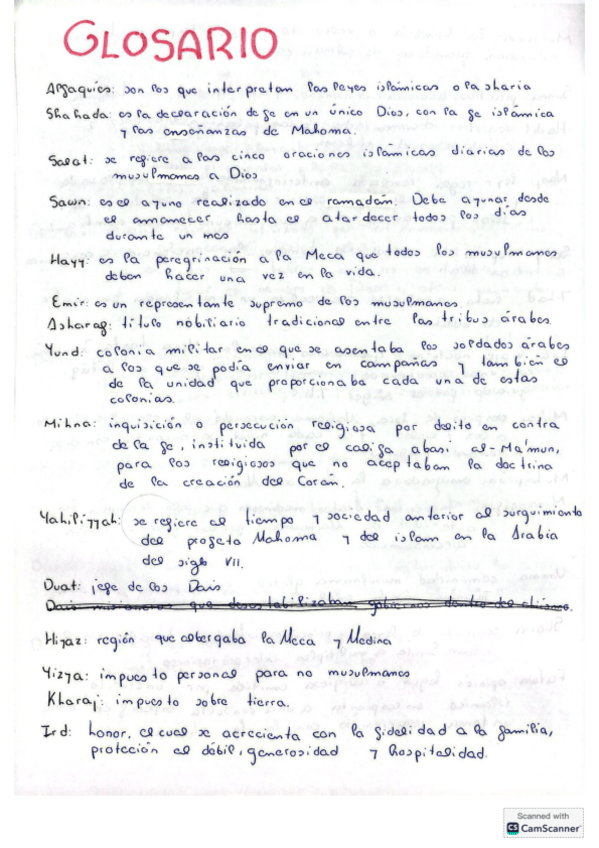 GLOSARIO
Alfaquíes: son los que interpretan las leyes islámicas o la sharia
Shahada: es la declaración de fe en un único Dios, con la fe islámica
y las enseñanzas de Mahoma.
Salat: se refiere a las cinco oraciones islámicas diarias de los
musulmanes a Dios
Sawn: es el ayuno realizado en el ramadán. Debe ayunar desde
el ammanecer hasta el atardecer todos los días
durante un mes
Hayy: es la peregrinación a la Meca que todos los musulmanes
deben hacer una vez en la vida.
Emir: es un representante supremo de los musulmanes.
Asharaf: título nobiliario tradicional entre las tribus árabes
Yund: colonia militar en el que se asentaba los soldados árabes
a los que se podía enviar en campañas y también el
de la unidad que proporcionaba cada una de estas
colonias.
Mihna: inquisición o persecución religiosa por delito en contra
de la fe, instituida por el califa abasí al-Ma'mun,
para los religiosos que no aceptaban la doctrina
de la creación del Corán.
Yahiliyyah: se refiere al tiempo y sociedad anterior al surguimiento
del profeta Mahoma y del islam en la Arabia
del siglo VII.
Duat: jefe de los Dais
Dais misioneros que desestabilizaban gobiernos dentro del
Hijaz: región que albergaba la Meca y Medina
Yizya: impuesto personal para no musulmanes
Kharaj: impuesto sobre tierra.
Ird: honor, el cual se acrecienta con la fidelidad a la familia,
protección al débil, generosidad y hospitalidad.
Scanned with
CS CamScanner